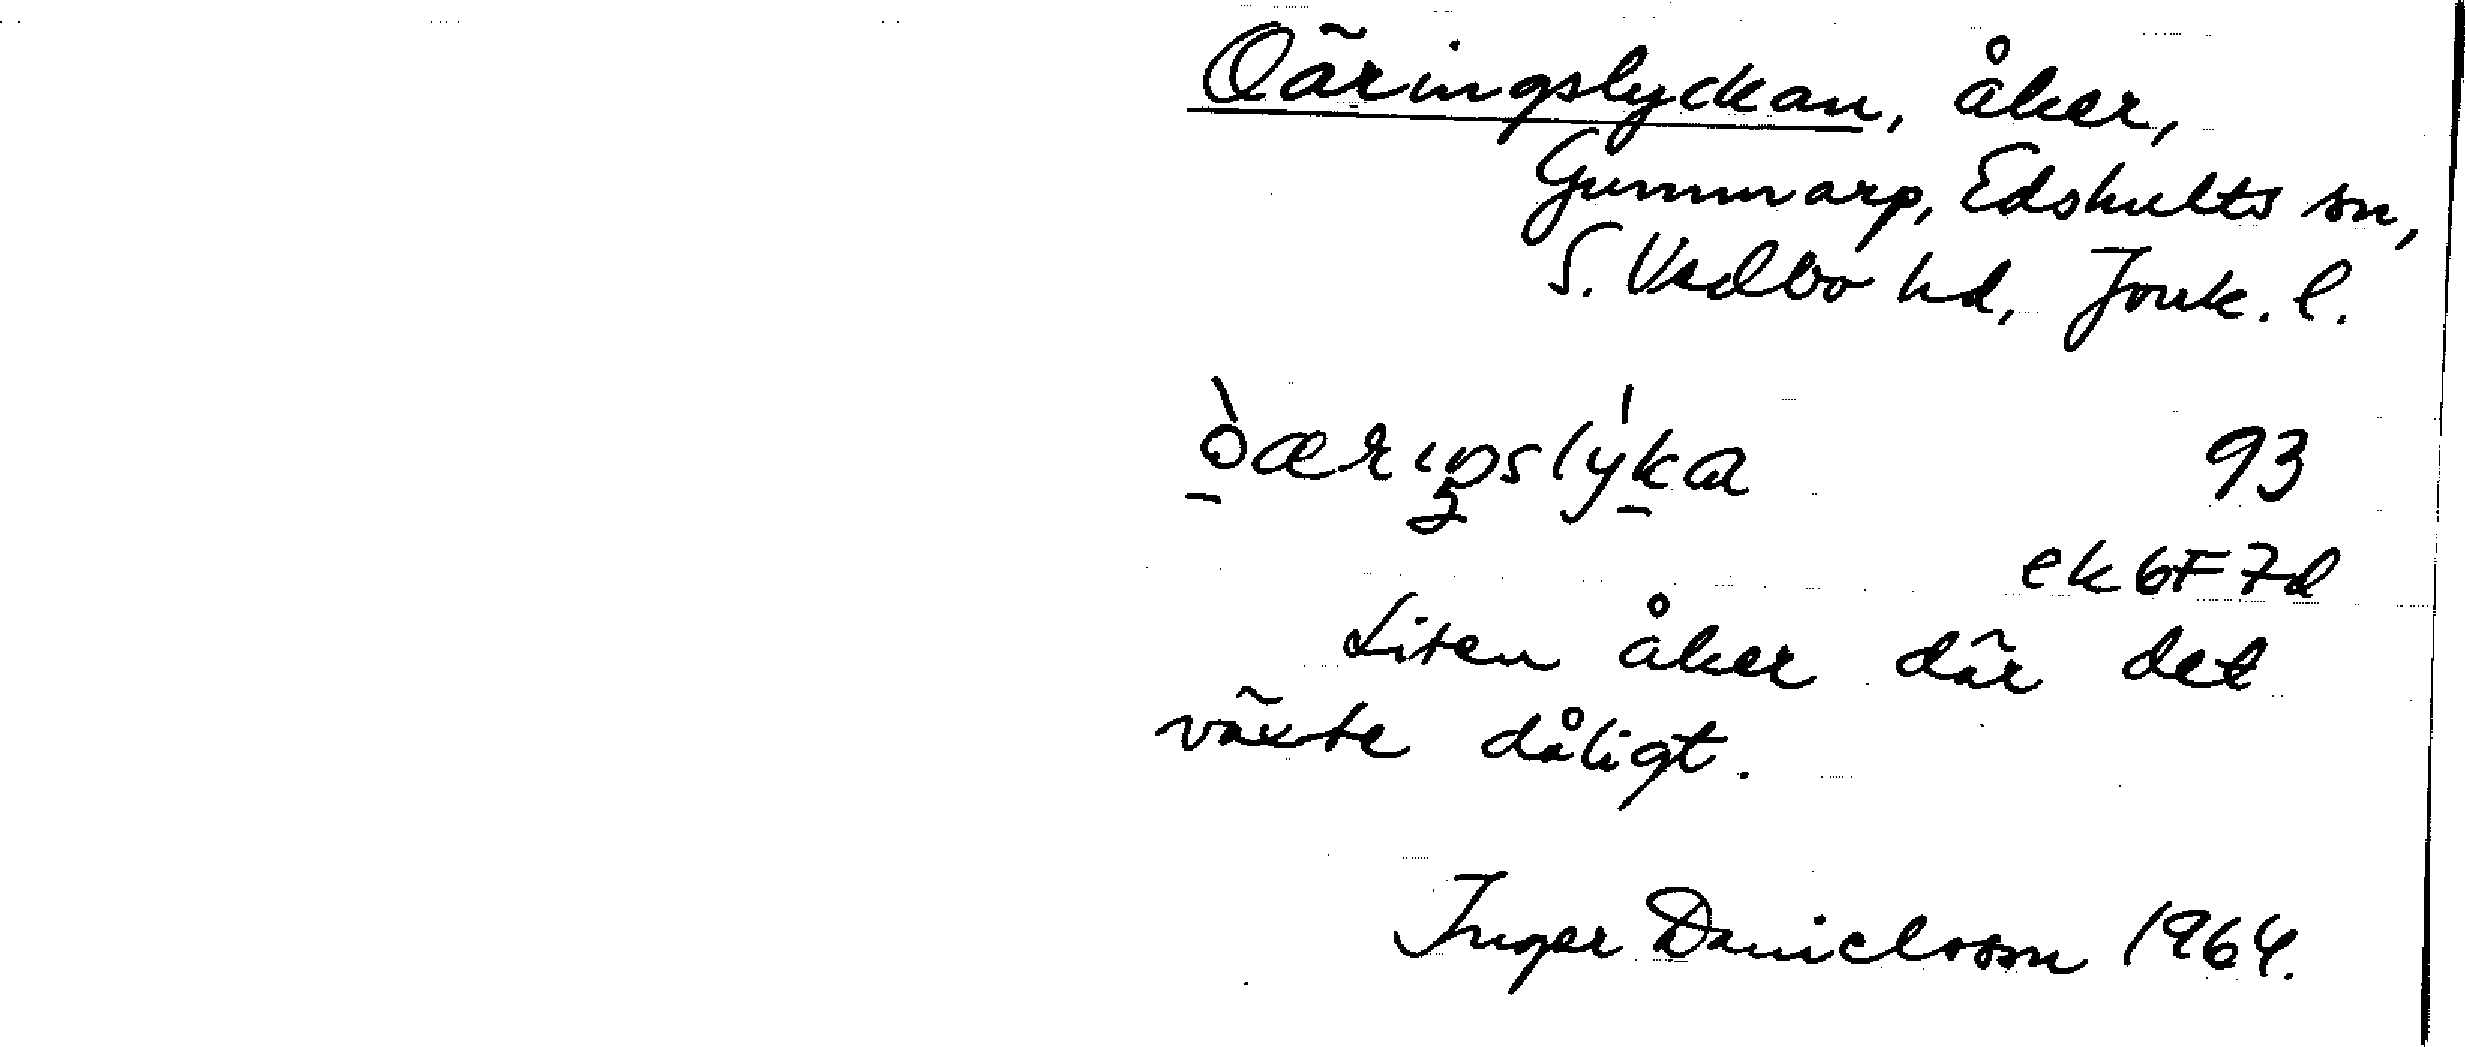 Oäringslyckan, åker,
Gummarp, Edshults sn,
S. Vedbo hd, Jönk. l.
93
ek 6F7d
Liten åker där det
växte dåligt.
Inger Danielsson 1964.